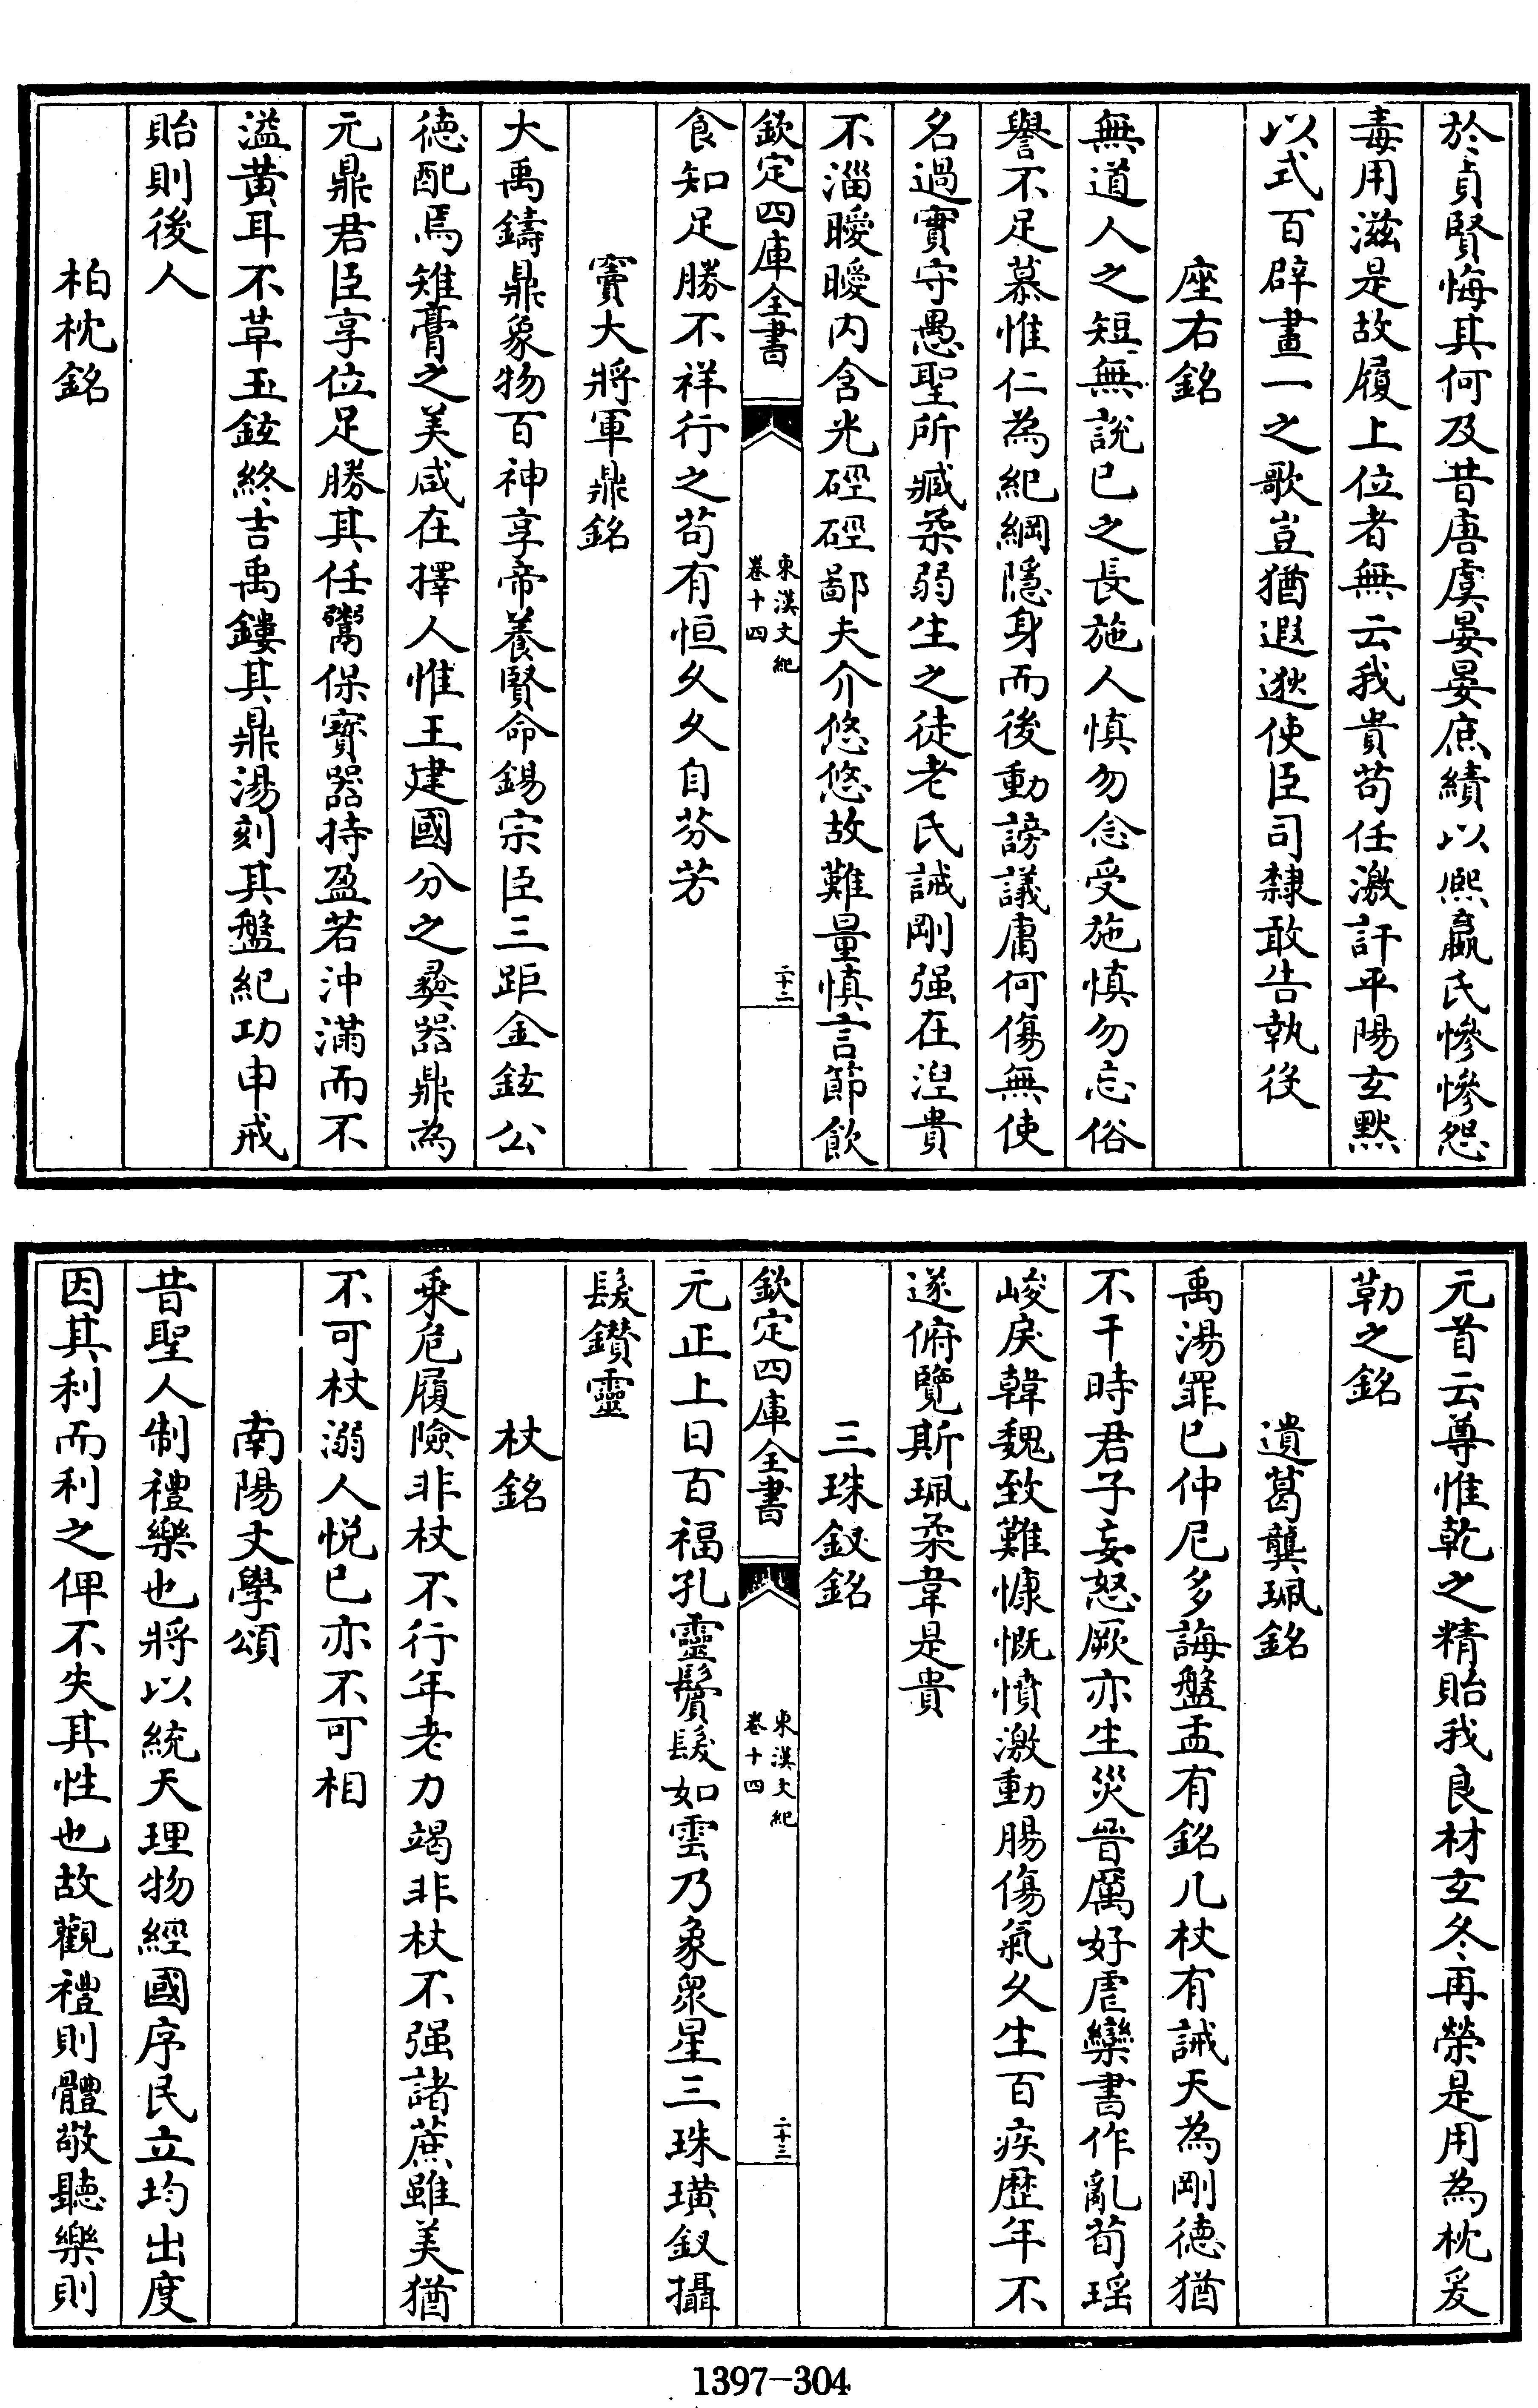 於貞賢悔其何及昔唐虞晏晏庶績以熙嬴氏慘慘怨
毒用滋是故履上位者無云我貴苟任激訐平陽玄默
以式百辟畫一之歌豈猶遐逖使臣司隸敢告執役
座右銘
無道人之短無說已之長施人慎勿念受施慎勿忘俗
譽不足慕惟仁為紀綱隱身而後動謗議庸何傷無使
名過實守愚聖所臧柔弱生之徒老氏誡剛强在涅貴
不淄曖曖内含光硜硜鄙夫介悠悠故難量慎言節飲
欽定四庫全書
東漢文紀
卷十四
二十二
食知足勝不祥行之苟有恒久久自芬芳
竇大將軍鼎銘
大禹鑄鼎象物百神享帝養賢命錫宗臣三距金鉉公
德配焉雉膏之美咸在擇人惟王建國分之彞器鼎為
元鼎君臣享位足勝其任鬻保寳器持盈若沖滿而不
溢黄耳不草玉鉉終吉禹鏤其鼎湯刻其盤紀功申戒
貽則後人
柏枕銘
元首云尊惟乾之精貽我良材玄冬再榮是用為枕爰
勒之銘
遺葛龔珮銘
禹湯罪已仲尼多誨盤盂有銘几杖有誡天為剛德猶
不干時君子妄怒厥亦生災晉厲好虐欒書作亂荀瑶
峻戾韓魏致難慷慨憤激動腸傷氣久生百疾歴年不
遂俯覽斯珮柔韋是貴
三珠釵銘
欽定四庫全書
東漢文紀
卷十四
二十三
元正上日百福孔靈鬢髮如雲乃象衆星三珠璜釵攝
髮鑚靈
杖銘
乘危履險非杖不行年老力竭非杖不强諸蔗雖美猶
不可杖溺人悦已亦不可相
南陽文學頌
昔聖人制禮樂也將以統天理物經國序民立均出度
因其利而利之俾不失其性也故觀禮則體敬聽樂則
1397-304